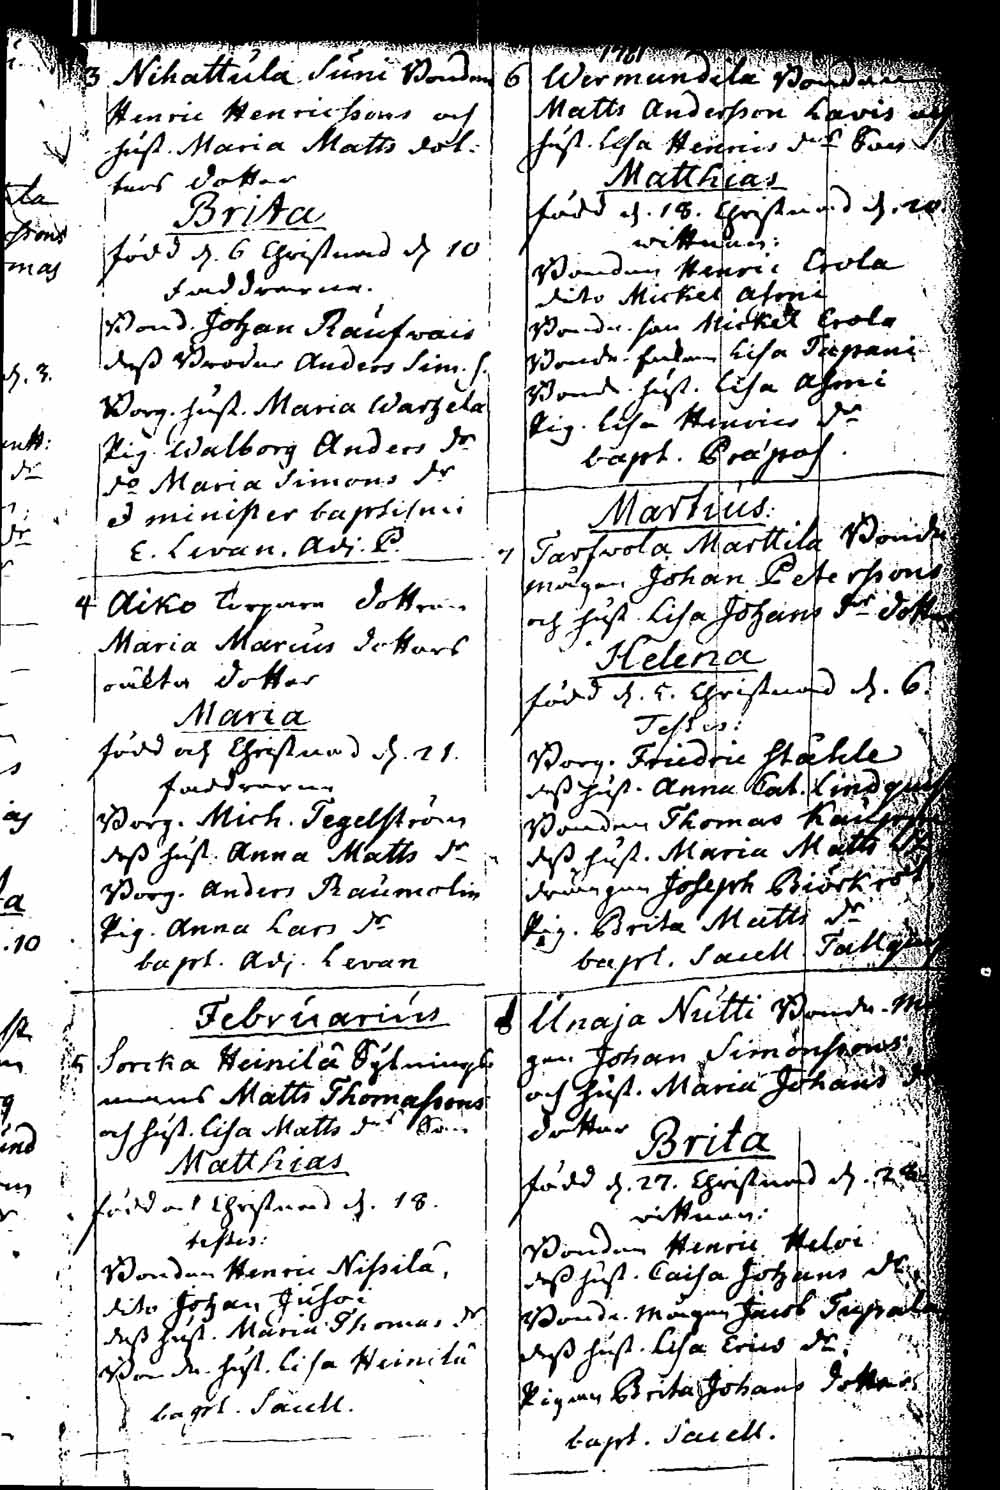 3 Nihattula Süni Bonden
Henric Henricssons och
hust. Maria Matts dot-
ters dotter
Brita
född d. 6 Christnad d. 10
faddrarne.
Bond. Johan Raufwais
dess Broder Anders Sim. s.
Borg. hust. Maria Warhela
Pig. Walborg Anders dr
do Maria Simons dr
et minister baptismi
E. Levan. Adj. P.
4 Aiko dottren
Maria Marcus dotters
oäkta dotter
Maria
född och Christnad d. 21.
faddrarne
Borg. Mich. Tegelström
dess hust. Anna Matts dr
Borg. Anders Raumolin
Pig. Anna Lars dr
bapt. Adj. Levan
Februarius
5 Sorcka Heinilä
Matts Thomassons
och hust. Lisa Matts drs Son
Matthias
född och Christnad d. 18.
testes:
Bonden Henric Nissilä,
dito Johan Jusoi
dess hust. Maria Thomas dr
Bonde hust. Lisa Heinilä
bapt. Sacell.
1761
6 Wermundila Bonden
Matts Andersson Lavis och
hust. Lisa Henrics drs Son
Matthias
född d. 18. Christnad d. 20.
wittnen:
Bonden Henric Erola
dito Mickel Ahmi
Bonde son Mickel Erola
Bonde Lisa Tapani
Bond. hust. Lisa Ahmi
Pig. Lisa Henrics dr
bapt. Præpos.
Martius.
7 Tarfvola Marttila Bonde
mågen Johan Peterssons
och hust. Lisa Johans drs dotter
Helena
född d. 5. Christnad d. 6.
Testes:
Borg. Friedric Ståhle
dess hust. Anna Cat. Lindquist
Bonden Thomas
dess hust. Maria Matts dr
drängen Joseph Biörkroth
Pig. Brita Matts dr
bapt. Sacell. Tallquist
8 Unaja Nutti Bonde-må
gen Johan Simonssons,
och hust. Maria Johans drs
dotter
Brita
född d. 27. Christnad d. 28.
wittnen:
Bonden Henric Heloi
dess hust. Caisa Johans dr
Bonde-mågen Jacob Tupala
dess hust. Lisa Erics dr,
Pigan Brita Johans dotter
bapt. Sacell.